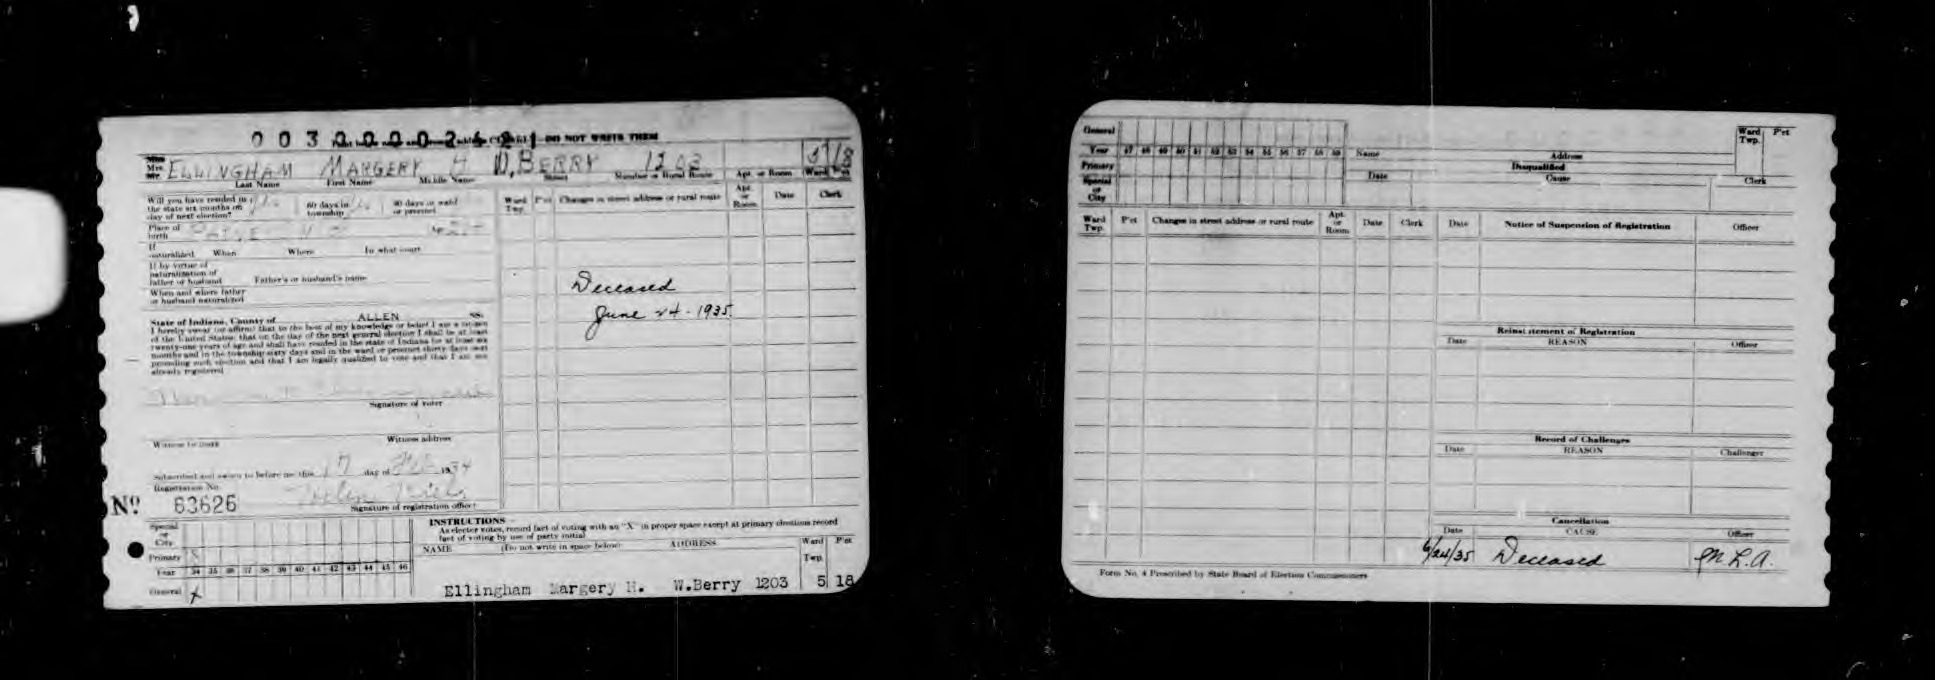 DO NOT WRITE THEM
Mrs.
Mr. ELLINGHAM MARGERY H W. BERRY 1203
Last Name First Name Middle Name Street Number or Rural Route Apt. or Room Ward P'ct
Will you have resided in
the state six months on
day of next election?
60 days in
township
30 days in ward
or precinct
Ward
Twp. P'ct Changes in street address or rural route Apt.
or
Room Date Clerk
Place of
birth Age
If
naturalized When Where In what court
If by virtue of
naturalization of
father or husband Father's or husband's name
When and where father
or husband naturalized
Deceased
June 24 - 1935.
State of Indiana, County of ALLEN SS:
I hereby swear (or affirm) that to the best of my knowledge or belief I am a citizen
of the United States; that on the day of the next general election I shall be at least
twenty-one years of age and shall have resided in the state of Indiana for at least six
months and in the township sixty days and in the ward or precinct thirty days next
preceding such election and that I am legally qualified to vote and that I am not
already registered
Signature of voter
Witness to mark Witness address
Subscribed and sworn to before me this 17 day of Feb 1934
Registration No.
No. 63626 Helen
Signature of registration officer
Special
or
City
Primary X
Year 34 35 36 37 38 39 40 41 42 43 44 45 46
General X
INSTRUCTIONS
As elector votes, record fact of voting with an "X" in proper space except at primary elections record
fact of voting by use of party initial
NAME (Do not write in space below) ADDRESS Ward
Twp. P'ct
Ellingham Margery H. W.Berry 1203 5 18
General
Year 47 48 49 50 51 52 53 54 55 56 57 58 59
Primary
Special
or
City
Name Address
Disqualified
Date Cause Clerk
Ward
Twp. P'ct
Ward
Twp. P'ct Changes in street address or rural route Apt.
or
Room Date Clerk
Date Notice of Suspension of Registration Officer
Reinstatement of Registration
Date REASON Officer
Record of Challenges
Date REASON Challenger
Cancellation
Date CAUSE Officer
6/24/35 Deceased M.L.A.
Form No. 4 Prescribed by State Board of Election Commissioners